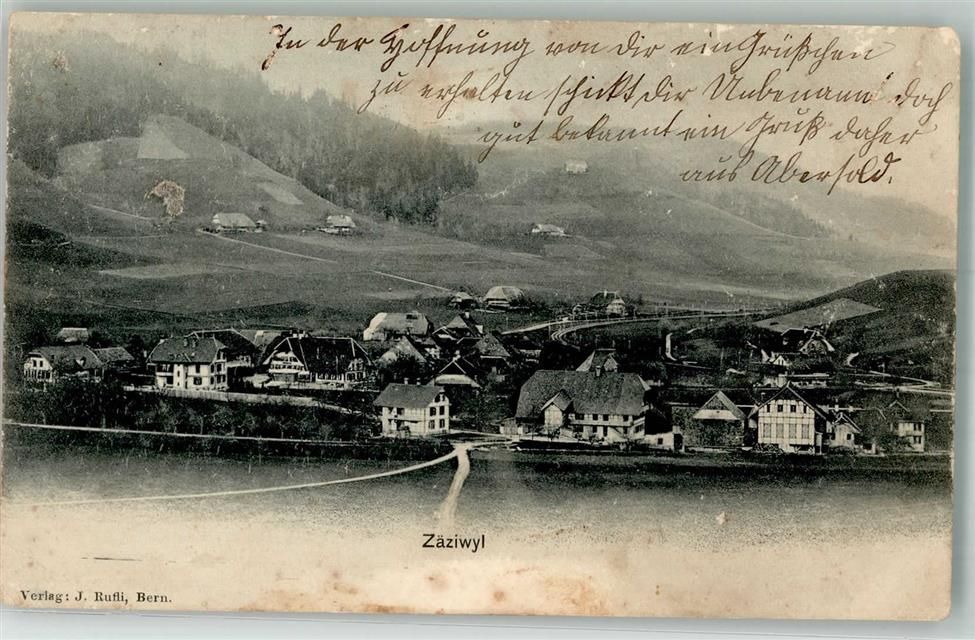 In der Hoffnung von dir ein Grüßchen
zu erhalten schickt dir Unbenannt doch
gut bekannt ein Gruß daher
aus Abersold.
Zäziwyl
Verlag: J. Rufli, Bern.